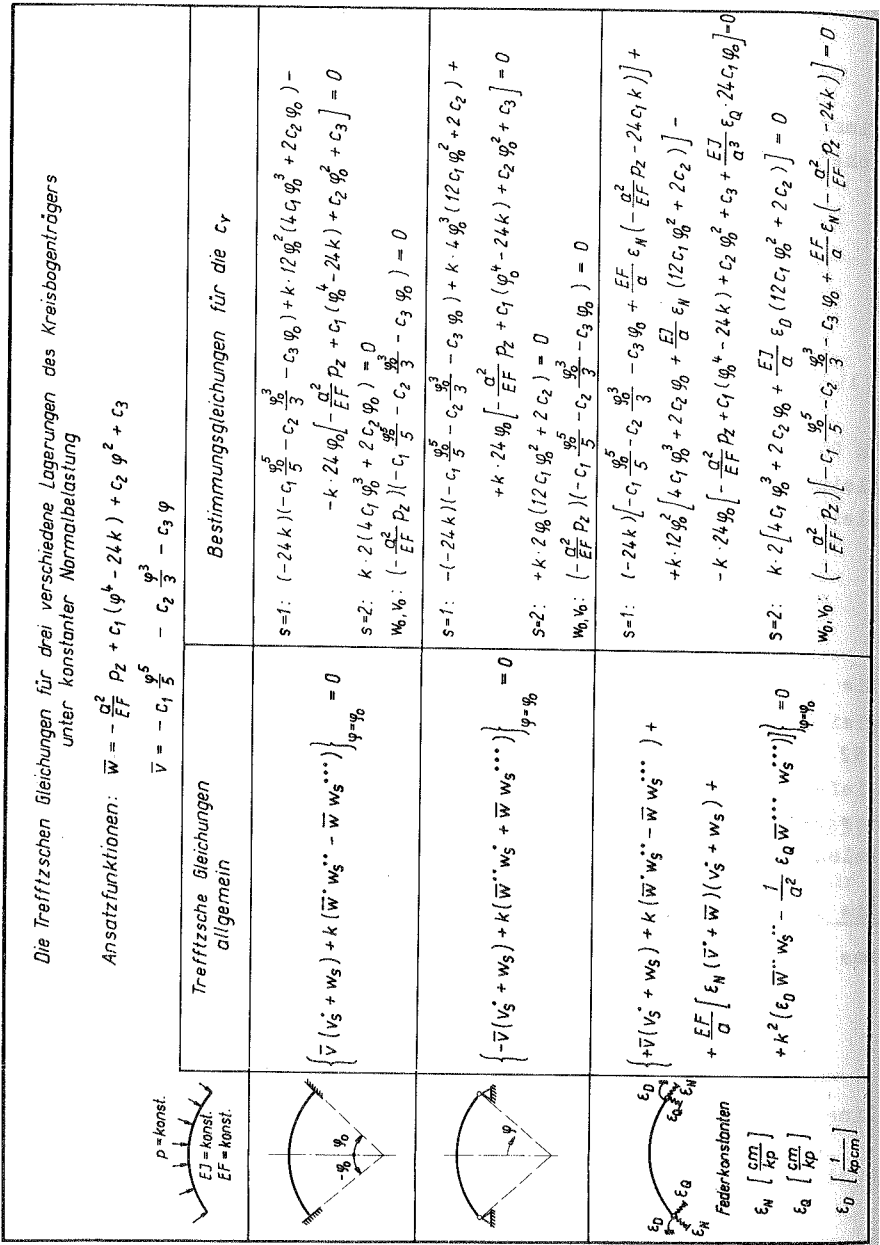 Die Trefftzschen Gleichungen für drei verschiedene Lagerungen des Kreisbogenträgers
unter konstanter Normalbelastung
Ansatzfunktionen: w̅ = - a²/EF p_z + c₁ (φ⁴ - 24k) + c₂ φ² + c₃
v̅ = - c₁ φ⁵/5 - c₂ φ³/3 - c₃ φ
p = konst.
EJ = konst.
EF = konst.
Trefftzsche Gleichungen
allgemein
Bestimmungsgleichungen für die c_γ
-φ₀ φ₀
{v̅ (v_s˙ + w_s) + k (w̅˙ w_s˙˙ - w̅ w_s˙˙˙)}_φ=φ₀ = 0
s=1: (-24k)(-c₁ φ₀⁵/5 - c₂ φ₀³/3 - c₃ φ₀) + k·12φ₀² (4c₁ φ₀³ + 2c₂ φ₀) -
-k·24φ₀ [- a²/EF p_z + c₁ (φ₀⁴ - 24k) + c₂ φ₀² + c₃] = 0
s=2: k·2 (4c₁ φ₀³ + 2c₂ φ₀) = 0
w₀, v₀: (- a²/EF p_z)(-c₁ φ₀⁵/5 - c₂ φ₀³/3 - c₃ φ₀) = 0
φ
{-v̅ (v_s˙ + w_s) + k (w̅˙˙ w_s˙ + w̅ w_s˙˙˙)}_φ=φ₀ = 0
s=1: -(-24k)(-c₁ φ₀⁵/5 - c₂ φ₀³/3 - c₃ φ₀) + k·4φ₀³ (12c₁ φ₀² + 2c₂) +
+k·24φ₀ [- a²/EF p_z + c₁ (φ₀⁴ - 24k) + c₂ φ₀² + c₃] = 0
s=2: +k·2φ₀ (12c₁ φ₀² + 2c₂) = 0
w₀, v₀: (- a²/EF p_z)(-c₁ φ₀⁵/5 - c₂ φ₀³/3 - c₃ φ₀) = 0
ε_D ε_Q ε_N
ε_D ε_Q ε_N
Federkonstanten
ε_N [cm/kp]
ε_Q [cm/kp]
ε_D [1/kp cm]
{+v̅ (v_s˙ + w_s) + k (w̅˙ w_s˙˙ - w̅ w_s˙˙˙) +
+ EF/a [ε_N (v̅˙ + w̅)(v_s˙ + w_s) +
+ k² (ε_D w̅˙˙ w_s˙˙ - 1/a² ε_Q w̅˙˙˙ w_s˙˙˙)]}_φ=φ₀ = 0
s=1: (-24k) [-c₁ φ₀⁵/5 - c₂ φ₀³/3 - c₃ φ₀ + EF/a ε_N (- a²/EF p_z - 24c₁ k)] +
+k·12φ₀² [4c₁ φ₀³ + 2c₂ φ₀ + EJ/a ε_N (12c₁ φ₀² + 2c₂)] -
-k·24φ₀ [- a²/EF p_z + c₁ (φ₀⁴ - 24k) + c₂ φ₀² + c₃ + EJ/a³ ε_Q · 24c₁ φ₀] = 0
s=2: k·2 [4c₁ φ₀³ + 2c₂ φ₀ + EJ/a ε_D (12c₁ φ₀² + 2c₂)] = 0
w₀, v₀: (- a²/EF p_z) [-c₁ φ₀⁵/5 - c₂ φ₀³/3 - c₃ φ₀ + EF/a ε_N (- a²/EF p_z - 24k)] = 0